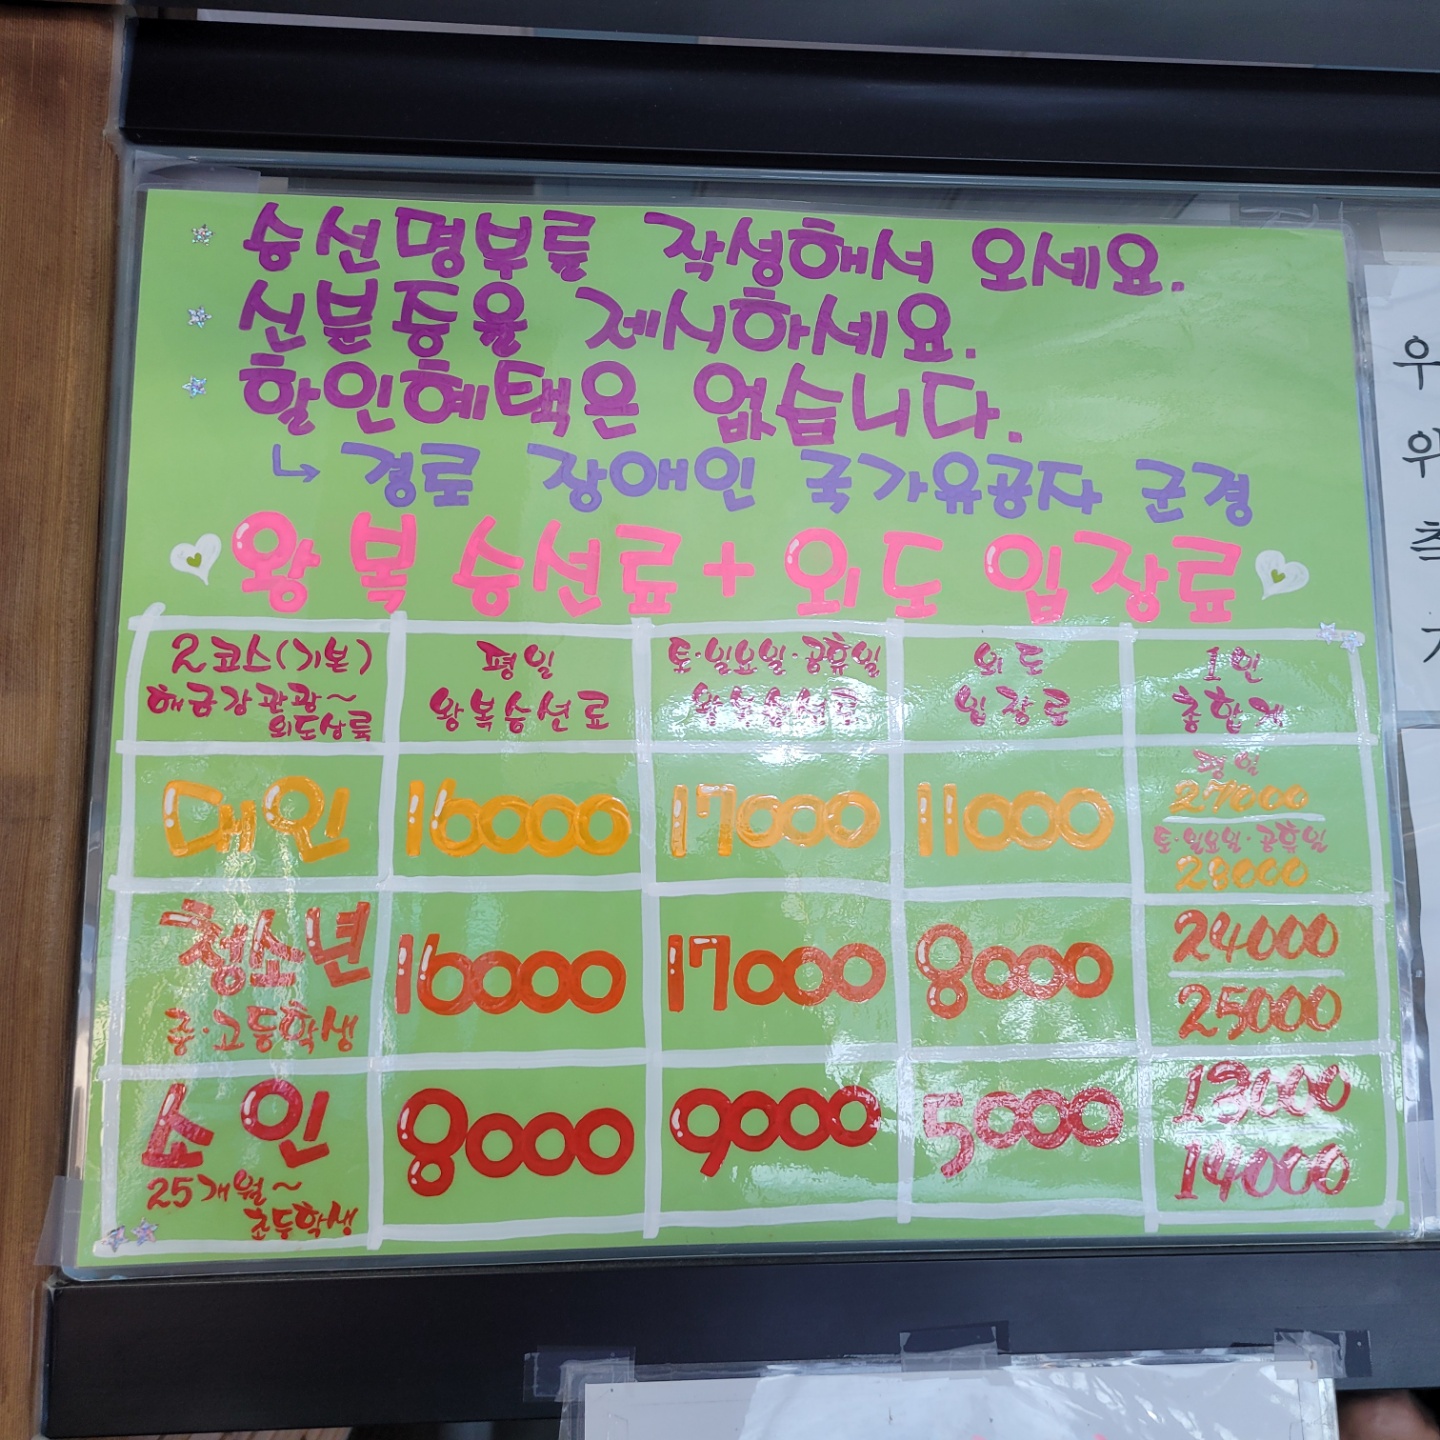 승선명부를 작성해서 오세요.
신분증을 제시하세요.
할인혜택은 없습니다.
↳ 경로 장애인 국가유공자 군경
왕복 승선료 + 외도 입장료
2코스(기본)
해금강관광~
외도상륙
평일
왕복승선료
토·일요일·공휴일
왕복승선료
외도
입장료
1인
총합계
대인
16000
17000
11000
평일
27000
토·일요일·공휴일
28000
청소년
중·고등학생
16000
17000
8000
24000
25000
소인
25개월~
초등학생
8000
9000
5000
13000
14000
우